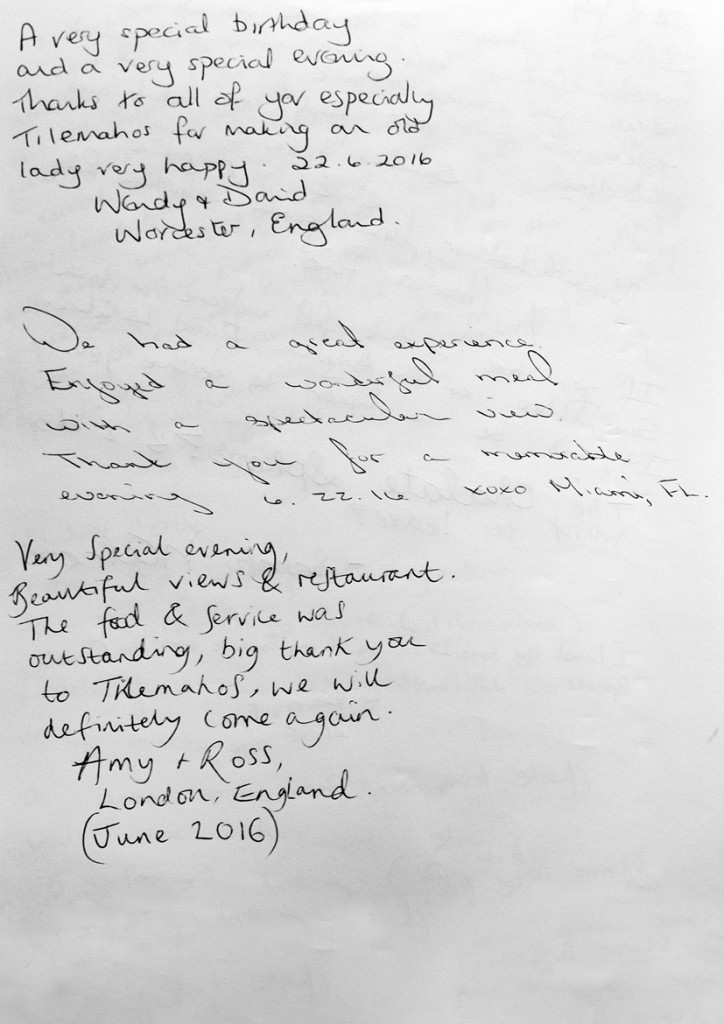 A very special birthday
and a very special evening.
Thanks to all of you especially
Tilemahos for making an old
lady very happy. 22.6.2016
Wendy & David
Worcester, England.
We had a great experience.
Enjoyed a wonderful meal
with a spectacular view.
Thank you for a memorable
evening 6.22.16 xoxo Miami, FL.
Very Special evening,
Beautiful views & restaurant.
The food & service was
outstanding, big thank you
to Tilemahos, we will
definitely come again.
Amy + Ross,
London, England.
(June 2016)